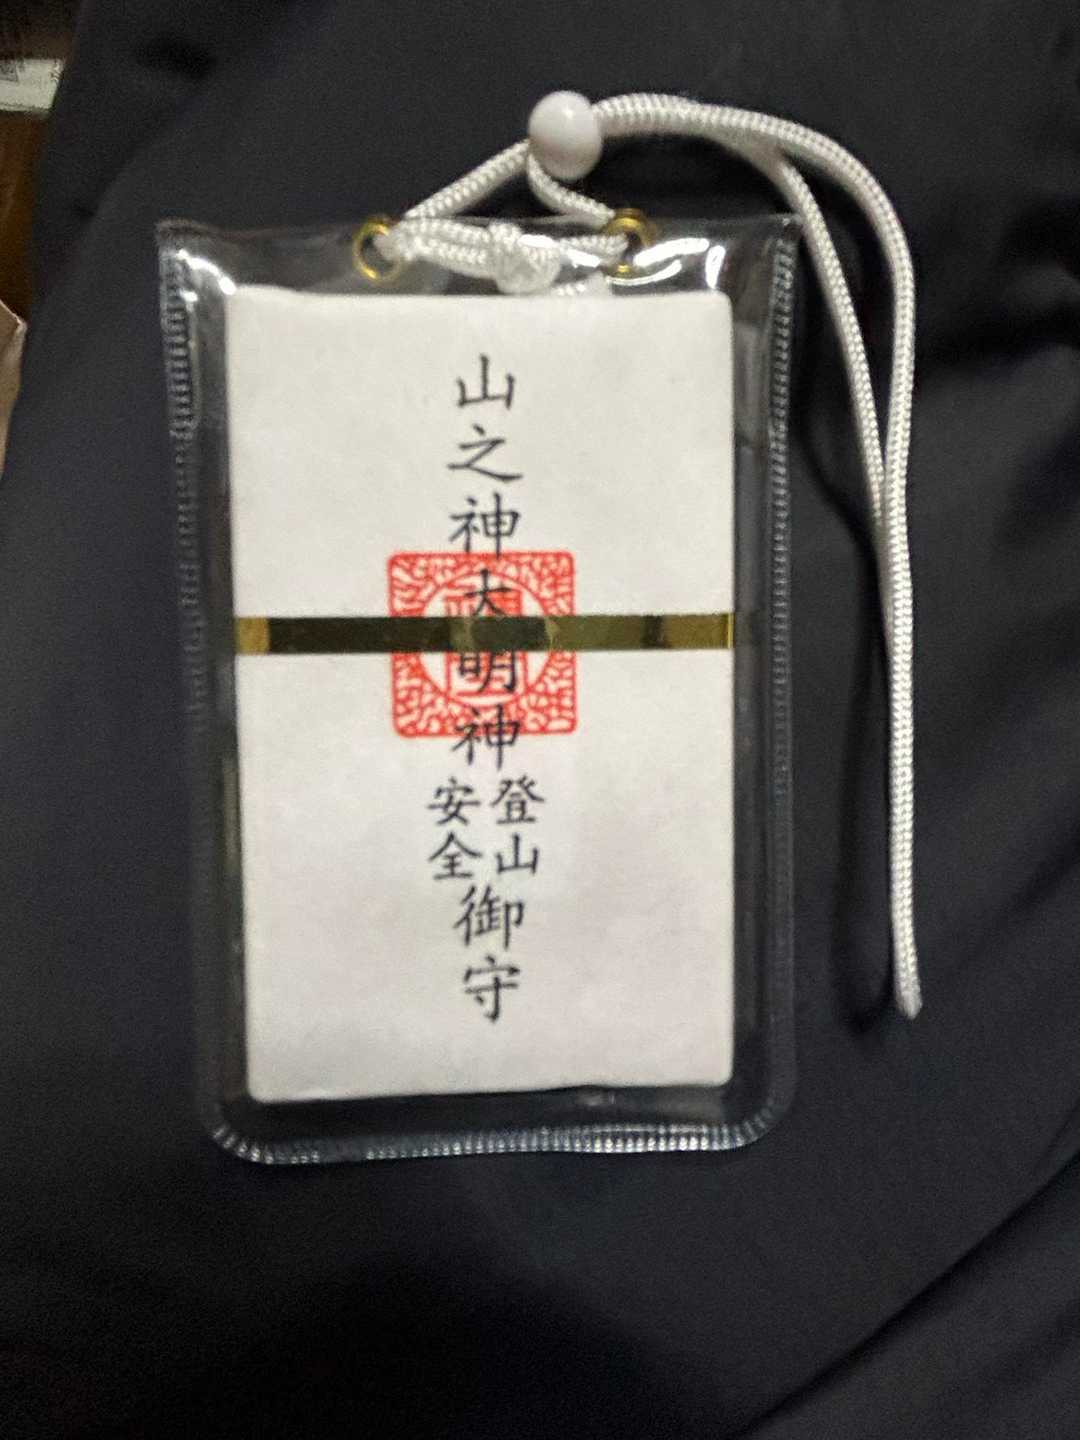 山之神大明神
登山
安全
御守